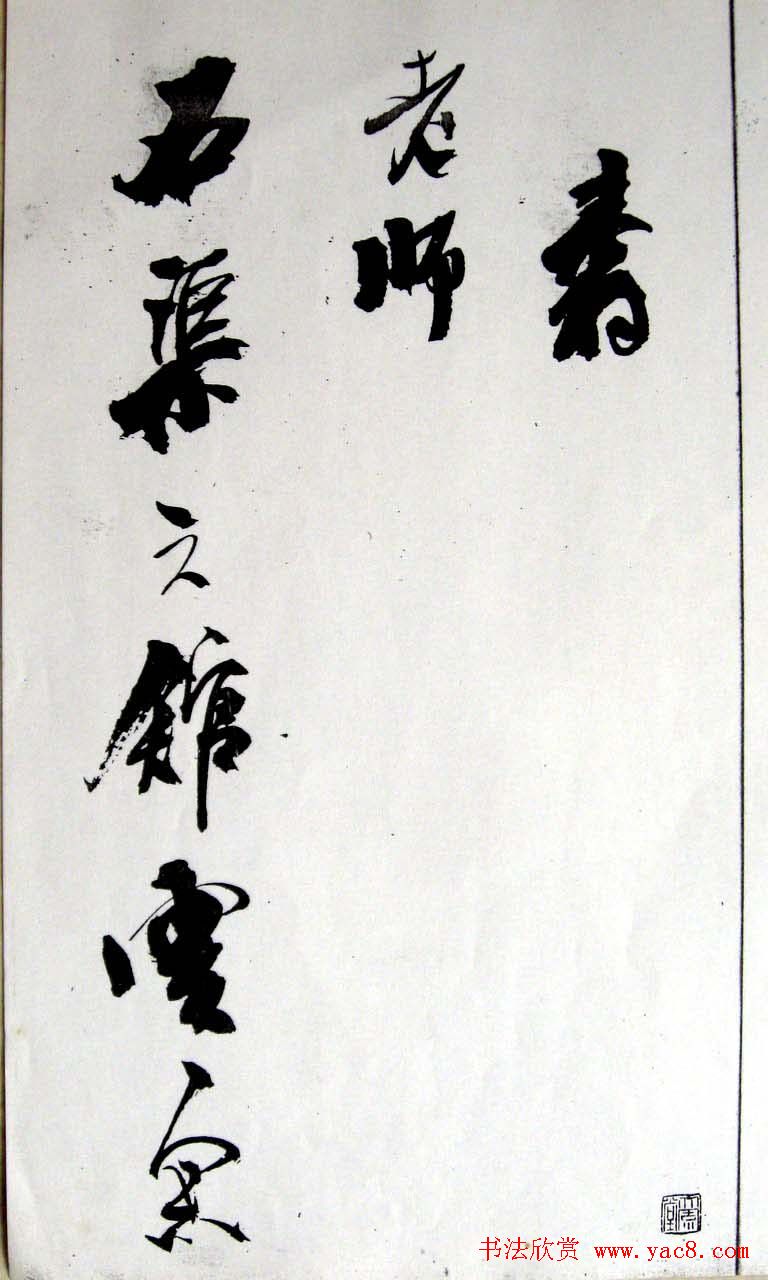 壽
老師
石渠之館
书法欣赏 www.yac8.com